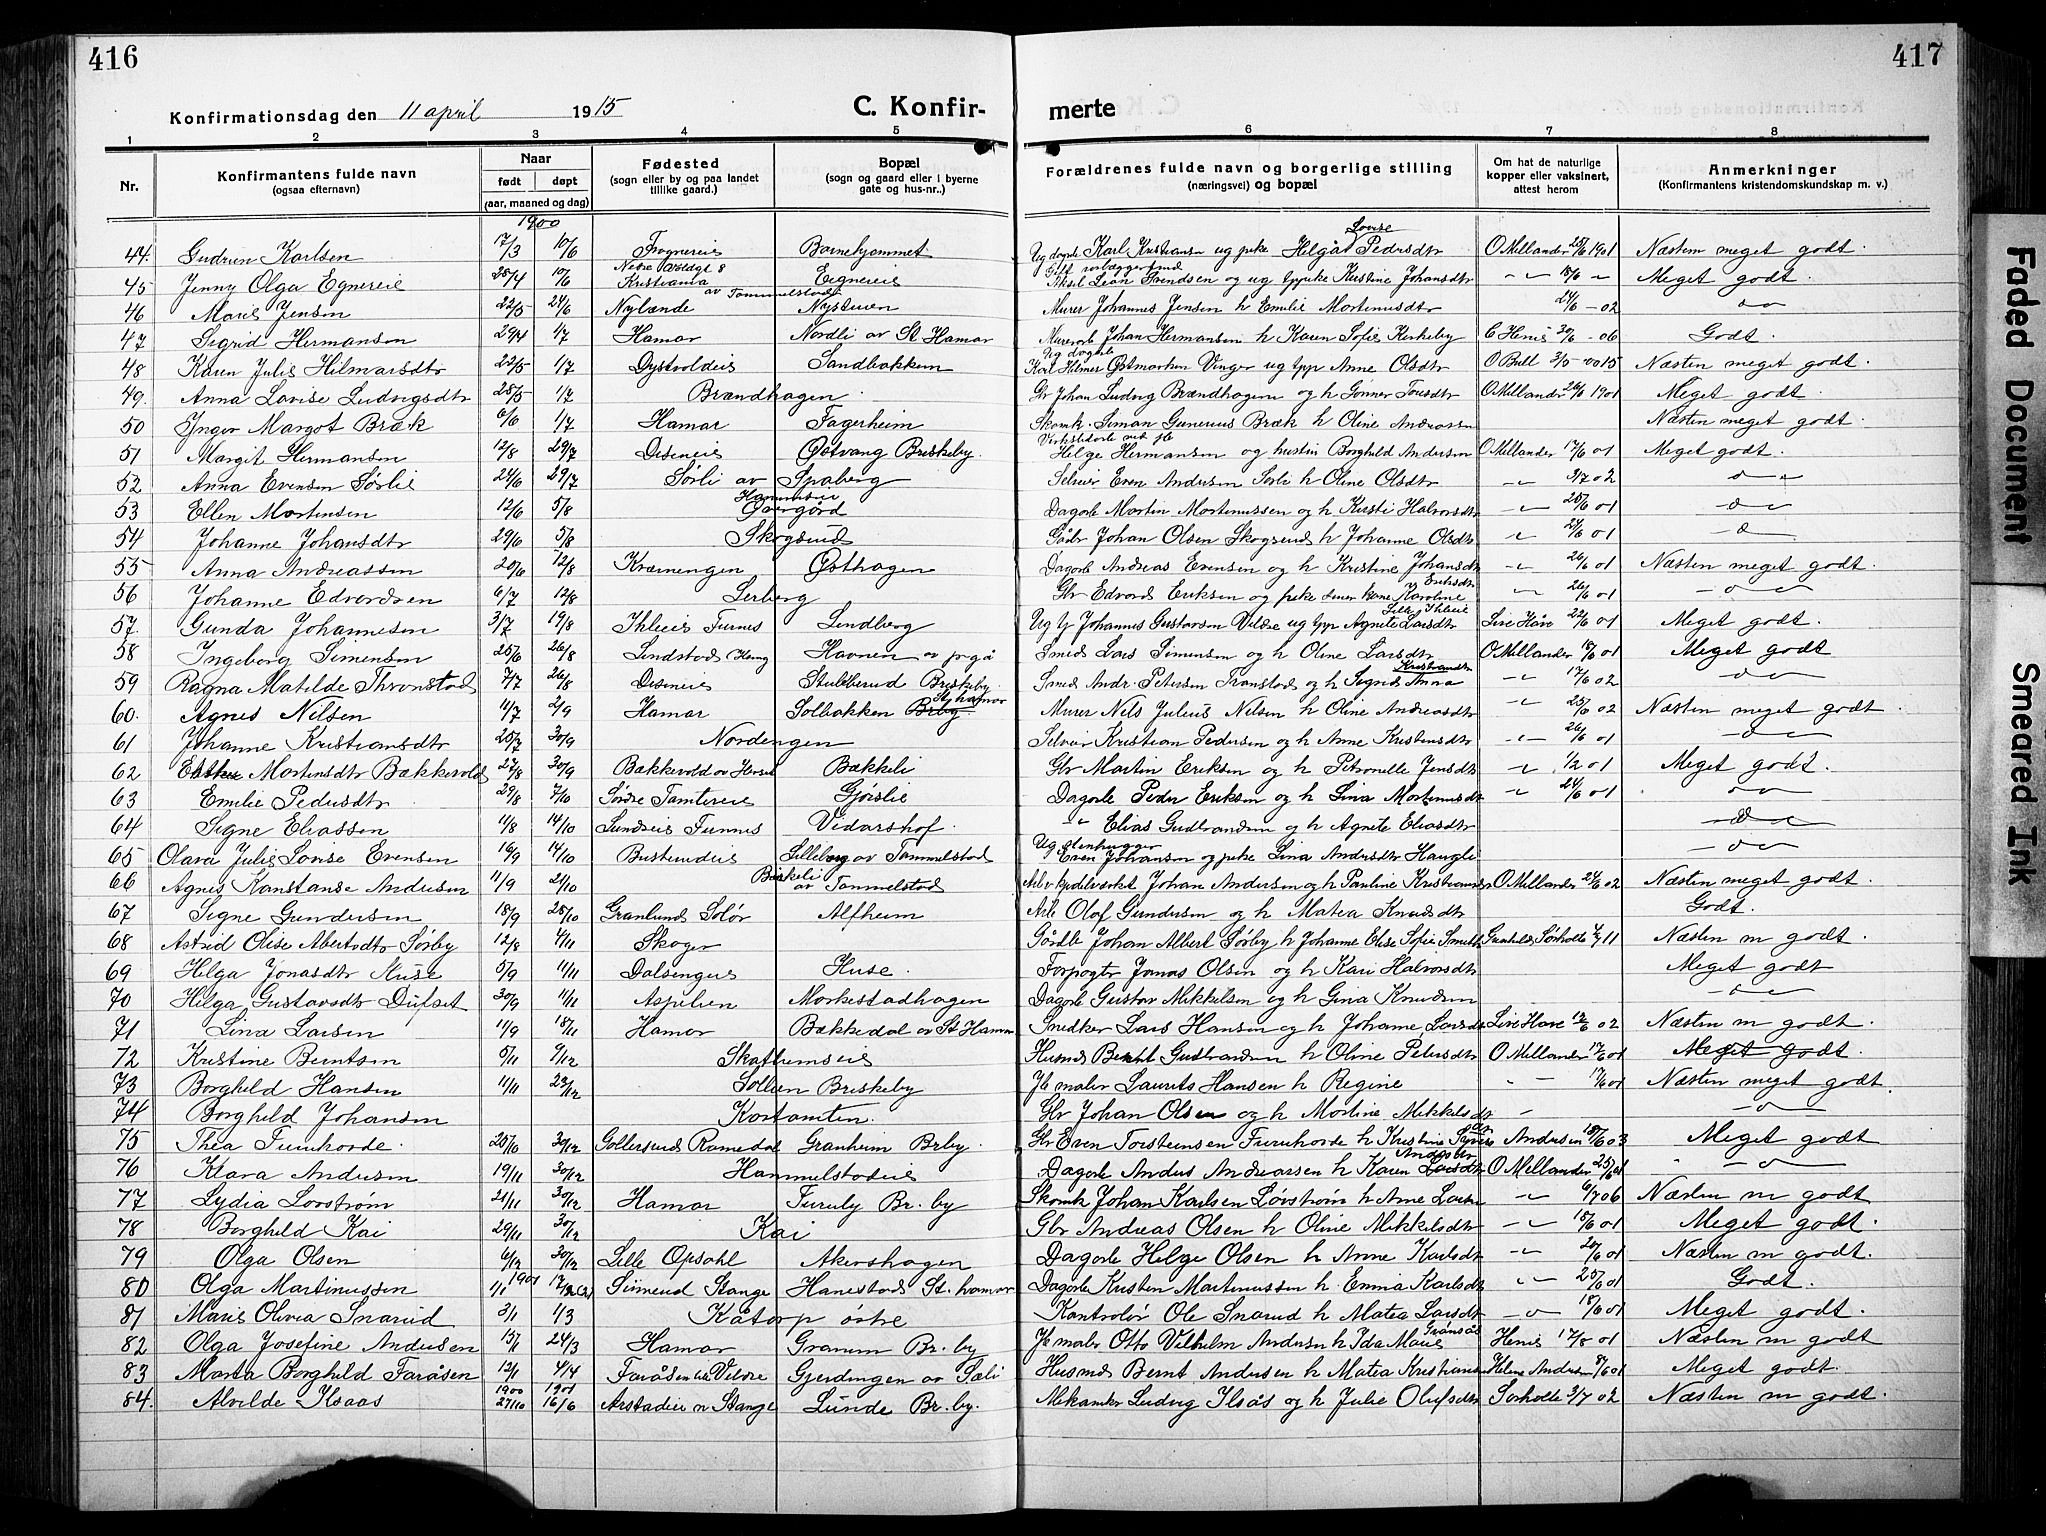 416
417
Konfirmationsdag den 11 april 1915
C. Konfir-
merte
1 2 3 4 5 6 7 8
Nr.
Konfirmantens fulde navn
(ogsaa efternavn)
Naar
født døpt
(aar, maaned og dag)
Fødested
(sogn eller by og paa landet
tillike gaard.)
Bopæl
(sogn og gaard eller i byerne
gate og hus-nr..)
Forældrenes fulde navn og borgerlige stilling
(næringsvei) og bopæl
Om hat de naturlige
kopper eller vaksinert,
attest herom
Anmerkninger
(Konfirmantens kristendomskundskap m. v.)
1900
44. Gudrun Karlsen 17/3 10/6 Frognereie Barnehjemmet Ug dagarb Karl Kristiansen ug pike Helga Lovise Pedersdtr O Mellander 25/6 1901 Næsten meget godt.
45 Jenny Olga Egnereie 28/4 10/6 Kristiania Eignereie Aksel Leon Svendsen og ug tppike Kristine Johansdtr 18/6 Meget godt.
46 Marie Jensen 22/5 24/6 Nylænde Nystuen av Tommelstad Murer Johannes Jensen h Emilie Martinusdtr 24/6 - 02
47 Sigrid Hermansen 29/4 1/7 Hamar Nordli av St Hamar Murerarb Johan Hermansen h Karen Sofie Kirkeby C Henis 30/6 - 06 Godt.
48 Karen Julie Hilmarsdtr 22/5 1/7 Dystvoldeie Sandbakken Karl Hilmer Østmarken Vinger ug tpp Anne Olsdtr O Bull 3/5 Næsten meget godt.
49. Anna Lovise Ludvigsdtr 28/5 1/7 Brændhagen Gbr Johan Ludvig Brændhagen og h Gønner Toresdtr O Mellander 26/6 1901 Meget godt.
50 Ynger Margot Bræk 6/6 1/7 Hamar Fagerheim Skomk. Siman Gunerius Bræk h Oline Andreassen Næsten meget godt
51 Margit Hermansen 12/8 29/7 Diseneie Østvang Briskeby. Helge Hermansen og hustru Borghild Andersen O Mellander 17/6 01 Meget godt.
52 Anna Evensen Sørlie 24/6 29/7 Sørli av Spaberg Selveier Even Andersen Sørli h Oline Olsdtr 3/7 02
53 Ellen Martinsen 12/6 5/8 Dagarb Martin Martinussen og h Kersti Halvorsdtr 25/6 01
54 Johanne Johansdtr 29/6 5/8 Skogsrud Gårbr Johan Olsen Skogsrud h Johanne Olsdtr 24/6 01
55 Anna Andreassen 20/6 12/8 Kværningen Østhagen Dagarb Andreas Evensen og h Kristine Johansdtr 26/6 01 Næsten meget godt.
56 Johanne Edvardsen 6/7 12/8 Lerberg Gbr Edvard Eriksen og pike Karoline Eriksdtr 26/6 01
57 Gunda Johannesen 3/7 19/8 Ihleeie Furnes Lindberg Ug Johannes Gustavsen Veldre ug tpp Agnete Larsdtr Live Håve 22/6 01 Meget godt.
58 Ingeborg Simensen 25/6 26/8 Lindstad Havnen av p-gå Smed Lars Simensen og h Oline Larsdtr O Mellander 18/6 01 Meget godt
59 Ragna Matilde Thronstad 7/7 26/8 Diseneie Stubberud Briskeby. Smed Andr. Petersen Tronstad og h Sigrid Anna Kristiansdtr 17/6 02
60. Agnes Nilsen 11/7 2/9 Hamar Solbakken St hamar Murer Nils Julius Nilsen h Oline Andreasdtr 25/6 02 Næsten meget godt.
61 Johanne Kristiansdtr 25/7 30/9 Nordengen Selveier Kristian Pedersen og h Anne Kristensdtr 26/6 01
62 Esther Martinsdtr Bækkevold 27/8 30/9 Bækkevold Bækkeli Gbr Martin Eriksen og h Petronelle Jensdtr 1/2 01 Meget godt.
63 Emilie Pedersdtr 29/8 7/10 Søndre Tomtereie Gjørslie Dagarb Peder Eriksen og h Lina Martinusdtr 24/6 01
64 Signe Eliassen 11/8 14/10 Sundreie Furnes Vidarshof. Elias Gudbrandsen og h Agnete Eliasdtr
65 Olava Julie Lovise Evensen 16/9 14/10 Bustrudeie Lilleberg av Tommelstad Ug stenhugger Even Johansen og pike Lina Andersdtr Haugli
66 Agnes Konstanse Andersen 11/9 21/10 Birkeli av Tommelstad Johan Andersen og h Pauline Kristiansen O Mellander 24/6 02 Næsten meget godt.
67 Signe Gundersen 18/9 28/10 Granlund Solør Alfheim Arb Olaf Gundersen og h Matea Knudsdtr Godt.
68 Astrid Olise Albertsdtr Sørby 12/8 4/11 Skogr Gårdbr Johan Albert Sørby h Johanne Elise Sofie Sorholte 11 Næsten m godt.
69 Helga Jonasdtr Huse 5/9 11/11 Dalsengeie Huse. Forpagtr Jonas Olsen og h Kari Halvorsdtr Meget godt
70 Helga Gustavsdtr Dufset 30/9 11/11 Aspelien Morkestadhagen Dagarb Gustav Mikkelsen og h Gina Knudsen
71 Lina Larsen 11/9 18/11 Hamar Bækkedal av St Hamar Snedker Lars Hansen og h Johanne Larsdtr Live Have 12/6 02 Næsten m godt.
72 Kristine Berntsen 5/11 9/12 Skattumseie Husmd Bernt Gudbrandsen h Oline Petersdtr O Mellander 17/6 01 Meget godt.
73 Borghild Hansen 11/11 23/12 Sollien Briskeby Jb maler Laurits Hansen h Regine 17/6 01 Næsten meget godt.
74 Borghild Johansen Kortomten. Gbr Johan Olsen og h Martine Mikkelsdtr
75 Thea Furuhovde. 25/10 30/12 Romedal Granheim Brby. Gbr Even Torsteinsen Furuhovde h Kristine Andersen 18/6 03 Meget godt
76 Klara Andersen 19/11 30/12 Hammelstadeie Dagarb Anders Andreassen h Karen Andersdtr O Mellander 25/6 01
77 Lydia Lovstrøm 21/11 30/12 Hamar Furuly Br. by Skomk Johan Karlsen Løvstrøm h Anne Larsen 6/7 06 Næsten m godt
78 Borghild Kai 29/11 30/12 Kai Gbr Andreas Olsen h Oline Mikkelsdtr 18/6 01 Meget godt.
79 Olga Olsen 6/12 30/12 Lille Opsahl Akershagen Dagarb Helge Olsen h Anne Karlsdtr 20/6 01 Næsten m godt.
80 Olga Martinussen 1/1 1901 Sinnerud Stange Hanestad St. hamar Dagarb Kristen Martinussen h. Emma Karlsdtr 25/6 01 Godt.
81 Marie Olivia Snarud 3/1 1/3 Kåtorp østre Kontrolør Ole Snarud h Matea Larsdtr 18/6 01 Meget godt.
82 Olga Josefine Andersen 13/1 24/3 Hamar Granum Br. by Jb maler Otto Vilhelm Andersen h Ida Marie Grønsås Henis 17/8 01 Næsten m godt
83 Marta Borghild Faråsen 12/1 4/4 Faråsen Veldre Gjerdingen av Sæli Husmd Bernt Andersen h Matea Kristiansen Helene Andersen 8/6 01 Meget godt.
84. Alvilde Ilsaas 1900 27/10 1901 16/6 Arstadeie n Stange Lunde Br. by. Mekaniker Ludvig Ilsås og h Julie Olufsdtr Sorholte 3/7 02 Næsten m godt.
Faded Document
Smeared Ink